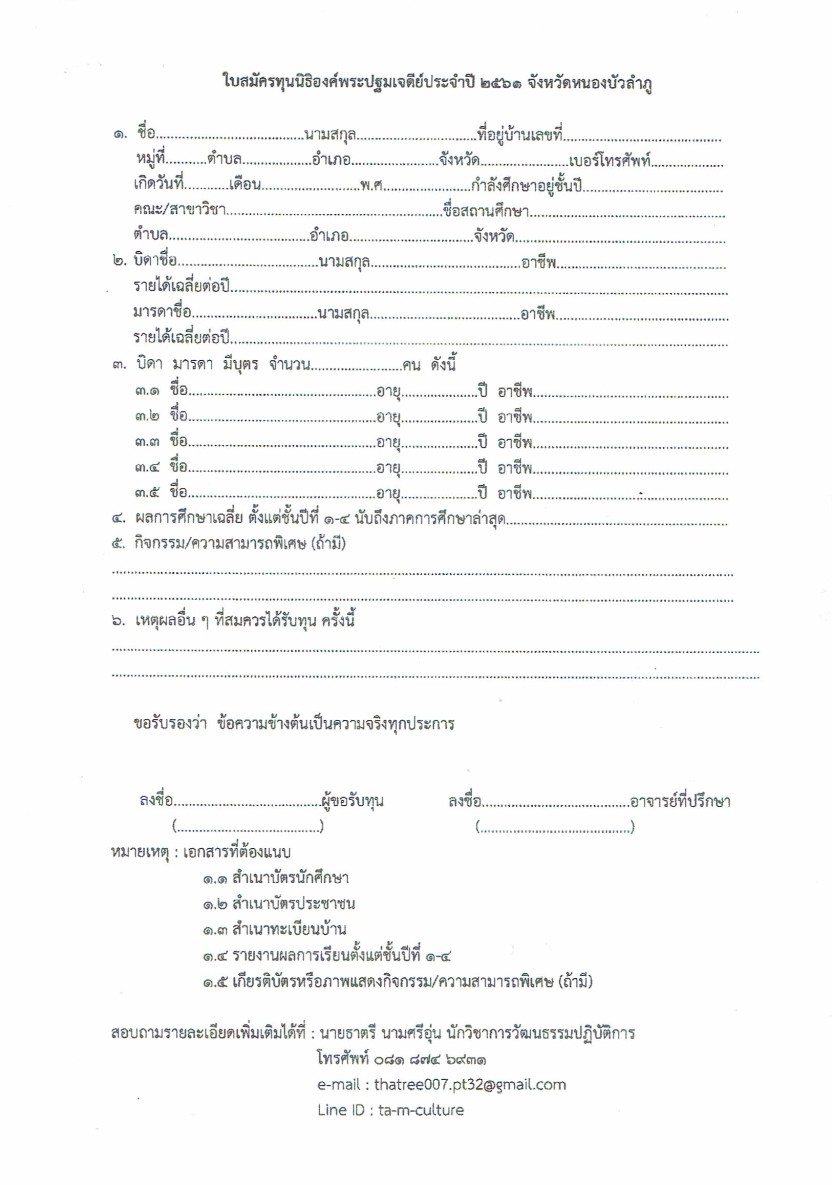 ใบสมัครทุนนิธิองค์พระปฐมเจดีย์ประจำปี ๒๕๖๑ จังหวัดหนองบัวลำภู
๑. ชื่อ.....................................นามสกุล..............................ที่อยู่บ้านเลขที่........................................
หมู่ที่...........ตำบล.................อำเภอ......................จังหวัด.......................เบอร์โทรศัพท์..................
เกิดวันที่............เดือน.........................พ.ศ......................กำลังศึกษาอยู่ชั้นปี...................................
คณะ/สาขาวิชา.......................................................ชื่อสถานศึกษา.................................................
ตำบล....................................อำเภอ...............................จังหวัด.....................................................
๒. บิดาชื่อ....................................นามสกุล......................................อาชีพ...........................................
รายได้เฉลี่ยต่อปี..............................................................................................................................
มารดาชื่อ................................นามสกุล......................................อาชีพ...........................................
รายได้เฉลี่ยต่อปี..............................................................................................................................
๓. บิดา มารดา มีบุตร จำนวน.......................คน ดังนี้
๓.๑ ชื่อ...............................................อายุ...................ปี อาชีพ.................................................
๓.๒ ชื่อ...............................................อายุ...................ปี อาชีพ.................................................
๓.๓ ชื่อ...............................................อายุ...................ปี อาชีพ.................................................
๓.๔ ชื่อ...............................................อายุ...................ปี อาชีพ.................................................
๓.๕ ชื่อ...............................................อายุ...................ปี อาชีพ.................................................
๔. ผลการศึกษาเฉลี่ย ตั้งแต่ชั้นปีที่ ๑-๔ นับถึงภาคการศึกษาล่าสุด........................................................
๕. กิจกรรม/ความสามารถพิเศษ (ถ้ามี)
............................................................................................................................................................
............................................................................................................................................................
๖. เหตุผลอื่น ๆ ที่สมควรได้รับทุน ครั้งนี้
..................................................................................................................................................................
..................................................................................................................................................................
ขอรับรองว่า ข้อความข้างต้นเป็นความจริงทุกประการ
ลงชื่อ......................................ผู้ขอรับทุน ลงชื่อ......................................อาจารย์ที่ปรึกษา
(....................................) (......................................)
หมายเหตุ : เอกสารที่ต้องแนบ
๑.๑ สำเนาบัตรนักศึกษา
๑.๒ สำเนาบัตรประชาชน
๑.๓ สำเนาทะเบียนบ้าน
๑.๔ รายงานผลการเรียนตั้งแต่ชั้นปีที่ ๑-๔
๑.๕ เกียรติบัตรหรือภาพแสดงกิจกรรม/ความสามารถพิเศษ (ถ้ามี)
สอบถามรายละเอียดเพิ่มเติมได้ที่ : นายธาตรี นามศรีอุ่น นักวิชาการวัฒนธรรมปฏิบัติการ
โทรศัพท์ ๐๘๑ ๘๗๔ ๖๙๓๑
e-mail : thatree007.pt32@gmail.com
Line ID : ta-m-culture